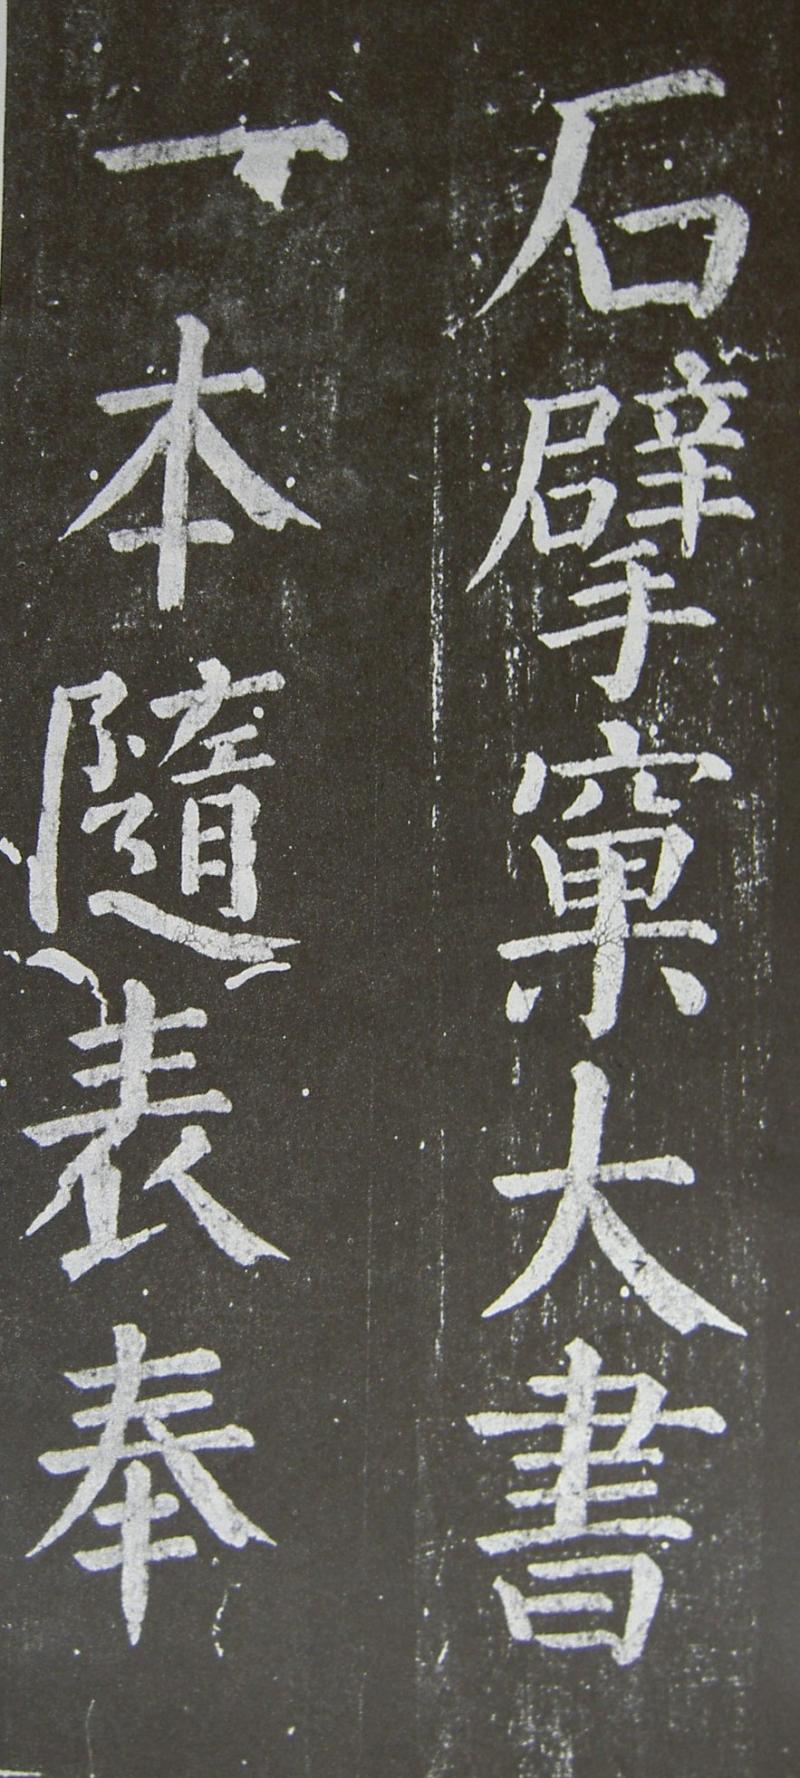 石擘窠大書
一本隨表奉